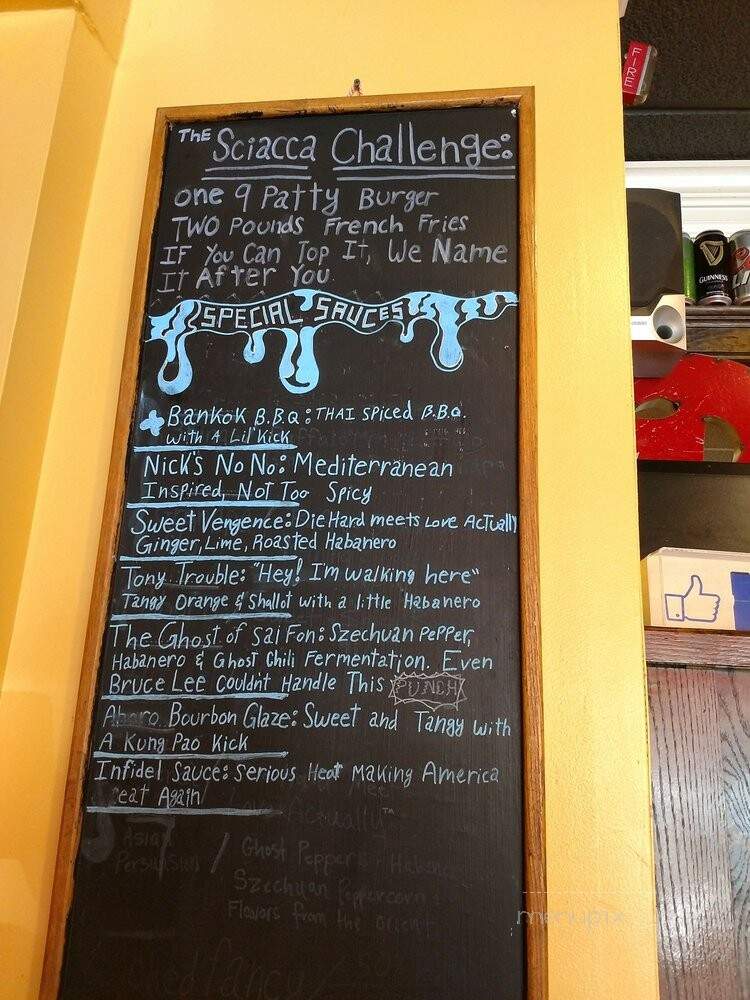 The Sciacca Challenge:
one 9 Patty Burger
Two Pounds French Fries
If You Can Top It, We Name
It After You
SPECIAL SAUCES
Bankok B.B.Q: THAI spiced B.B.Q.
with A Lil' Kick
Nick's No No: Mediterranean
Inspired, Not Too Spicy
Sweet Vengence: Die Hard meets Love Actually
Ginger, Lime, Roasted Habanero
Tony Trouble: "Hey! I'm walking here"
Tangy Orange & Shallot with a little Habanero
The Ghost of Sai Fon: Szechuan Pepper,
Habanero & Ghost Chili Fermentation. Even
Bruce Lee Couldnt Handle This PUNCH
Bourbon Glaze: Sweet and Tangy with
A Kung Pao Kick
Infidel Sauce: Serious Heat Making America
eat Again
Actually™
Asian
Persuasion / Ghost Pepper
Szechuan Peppercorn
Flavors from the orient
fancy
FIRE
GUINNESS
menupix